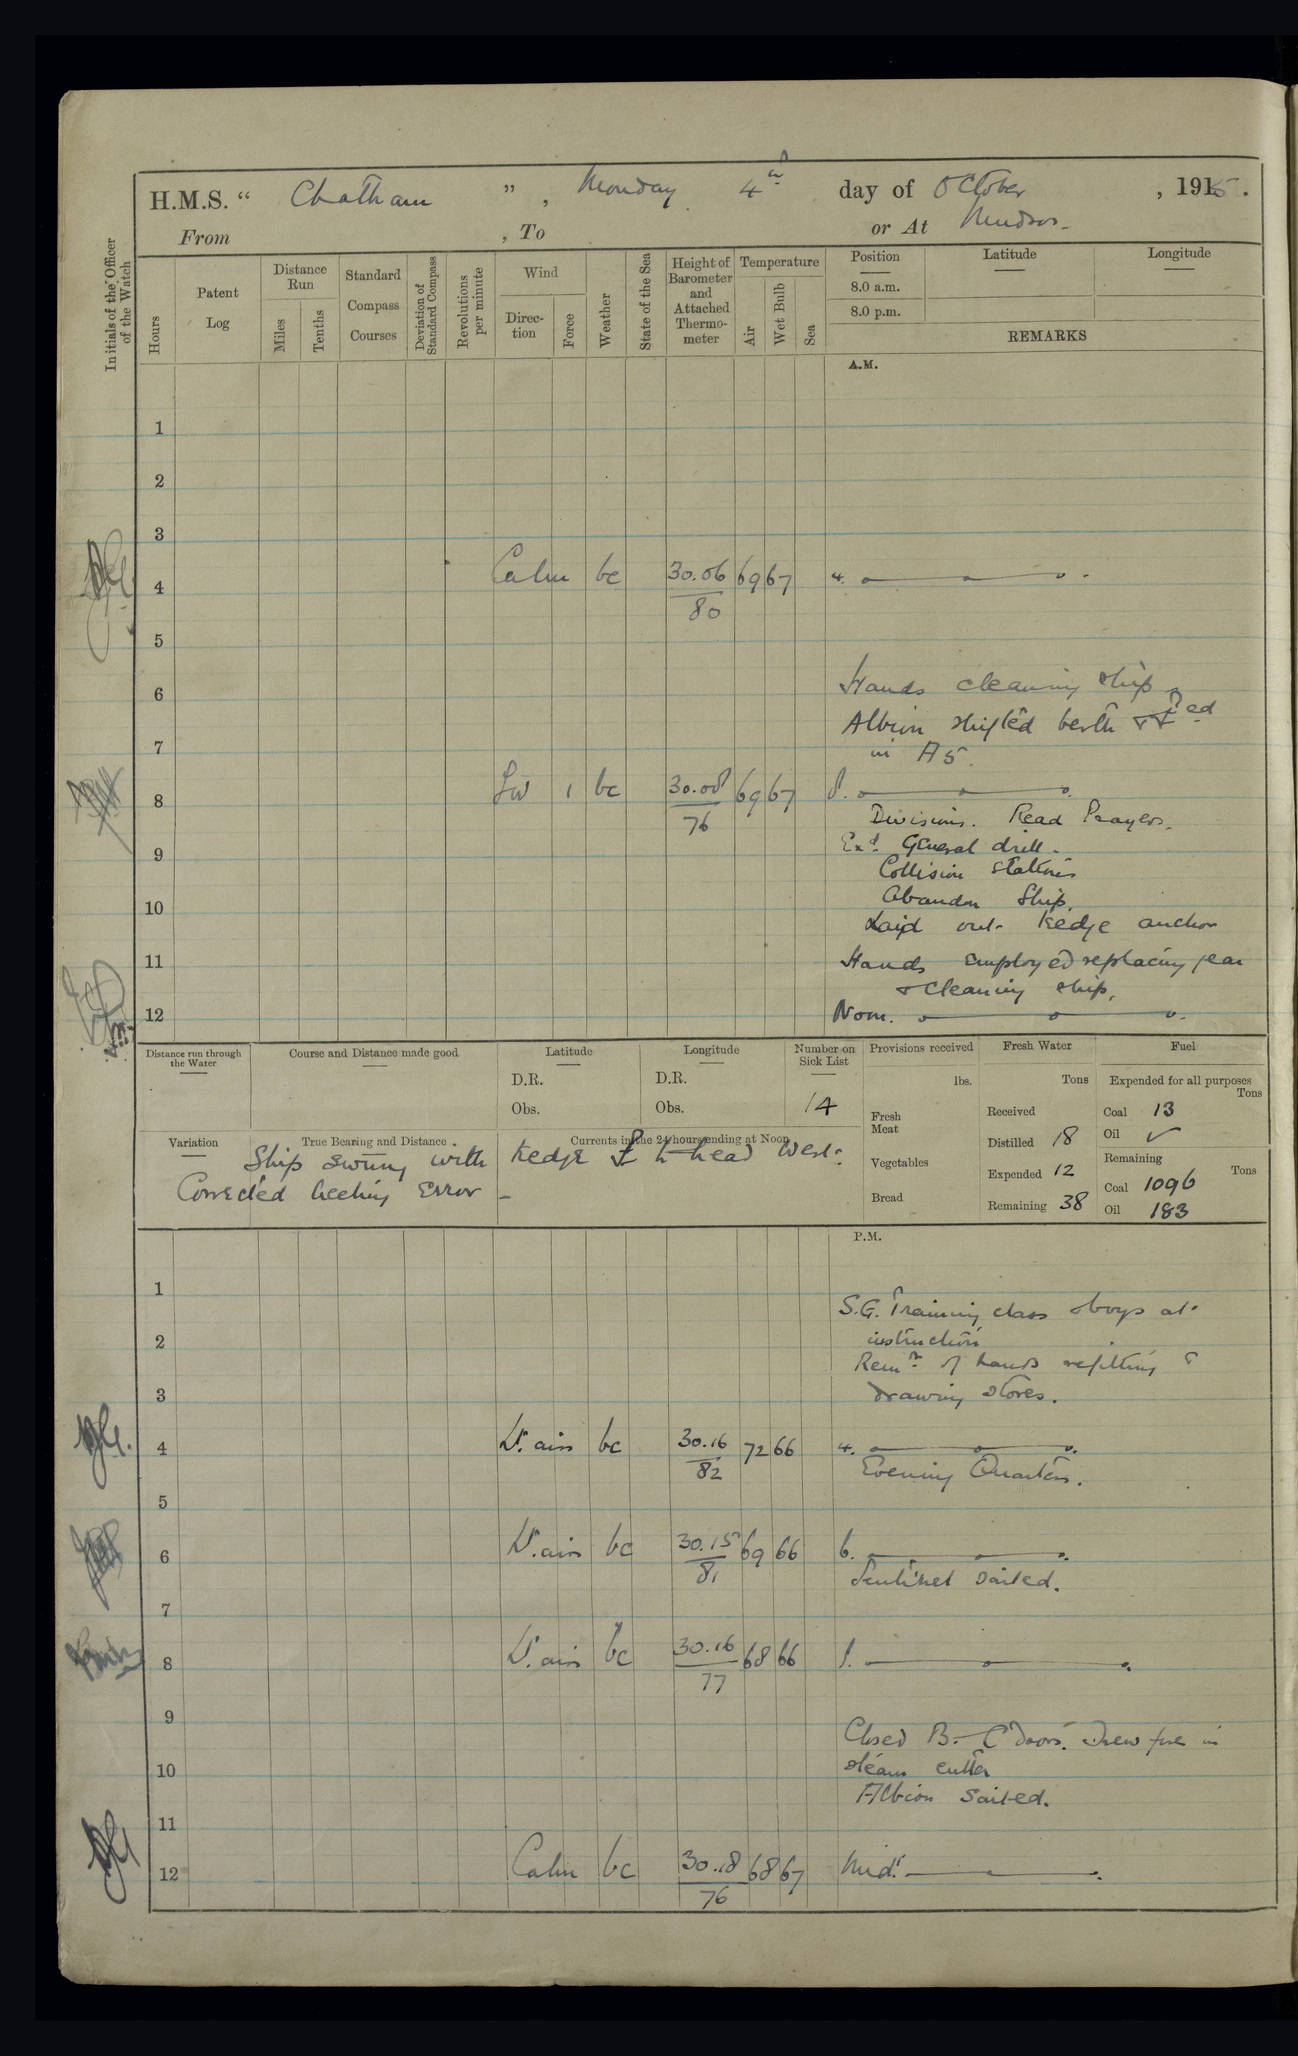 H.M.S. “ Chatham ”, Monday 4th day of October, 1915.
From , To or At Mudros.
Initials of the Officer of the Watch
Hours
Patent Log
Distance Run
Miles
Tenths
Standard Compass Courses
Deviation of Standard Compass
Revolutions per minute
Wind
Direction
Force
Weather
State of the Sea
Height of Barometer and Attached Thermometer
Temperature
Air
Wet Bulb
Sea
Position
Latitude
Longitude
8.0 a.m.
8.0 p.m.
REMARKS
A.M.
1
2
3
4 Calm bc 30.06 69 67 4.
80
5
6 Hands cleaning ship
Albion shifted berth &
7 in A5.
8 1 bc 30.08 69 67 8.
76
Divisions. Read Prayers.
9 Exd. General drill.
Collision Stations
10 Abandon Ship.
Laid out Kedge anchor
11 Hands employed replacing gear
& cleaning ship.
12 Noon.
Distance run through the Water
Course and Distance made good
Latitude
D.R.
Obs.
Longitude
D.R.
Obs.
Number on Sick List
14
Provisions received
lbs.
Fresh Meat
Vegetables
Bread
Fresh Water
Tons
Received
Distilled 18
Expended 12
Remaining 38
Fuel
Expended for all purposes
Tons
Coal 13
Oil ✓
Remaining
Tons
Coal 1096
Oil 183
Variation
True Bearing and Distance
Currents in the 24 hours ending at Noon
Ship swung with Kedge head West.
Corrected heeling Error -
P.M.
1
S.G. Training class & boys at
2 instruction
Remr. of hands refitting &
3 drawing stores.
4 Lt. airs bc 30.16 72 66 4.
82
Evening Quarters.
5
6 Lt. airs bc 30.15 69 66 6.
81
Sentinel sailed.
7
8 Lt. airs bc 30.16 68 66 8.
77
9
Closed B. C doors. Drew fire in
10 steam cutter
Albion sailed.
11
12 Calm bc 30.18 68 67 Midt.
76